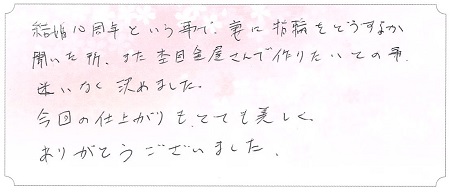 結婚10周年という事で、妻に指輪をどうするか
聞いた所、また杢目金屋さんで作りたいとの事、
迷いなく決めました。
今回の仕上がりも、とても美しく、
ありがとうございました。